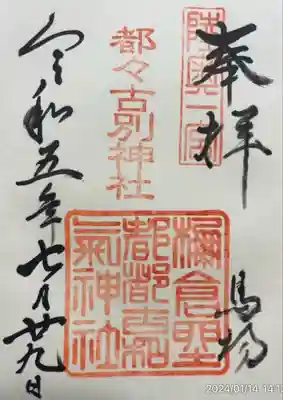 奉拝
陸奥一宮
馬場
都々古別神社
棚倉
都都古和
氣神社
令和五年七月廿九日
2024/01/14 14:1